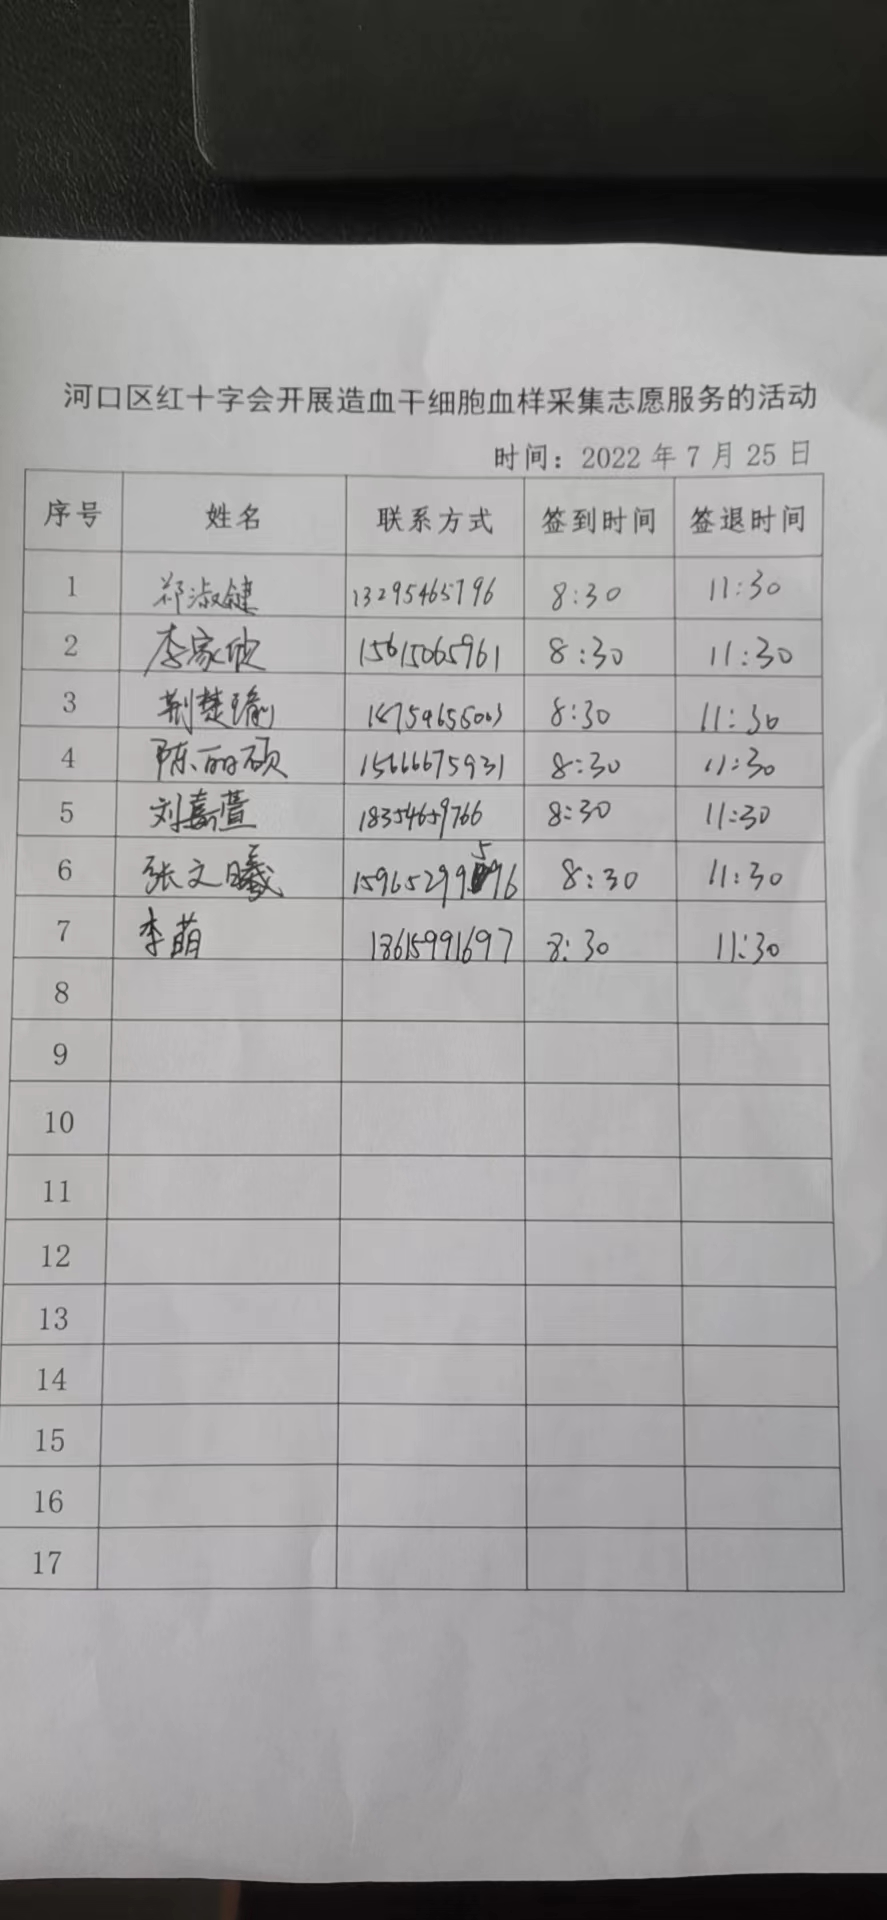 河口区红十字会开展造血干细胞血样采集志愿服务的活动
时间：2022 年 7 月 25 日
序号 姓名 联系方式 签到时间 签退时间
1 郑淑键 13295465796 8:30 11:30
2 李家欣 15615065961 8:30 11:30
3 荆楚瑜 8:30 11:30
4 陈丽硕 15666675931 8:30 11:30
5 刘嘉萱 18354659766 8:30 11:30
6 张文曦 15965299596 8:30 11:30
7 李萌 18615991697 8:30 11:30
8
9
10
11
12
13
14
15
16
17